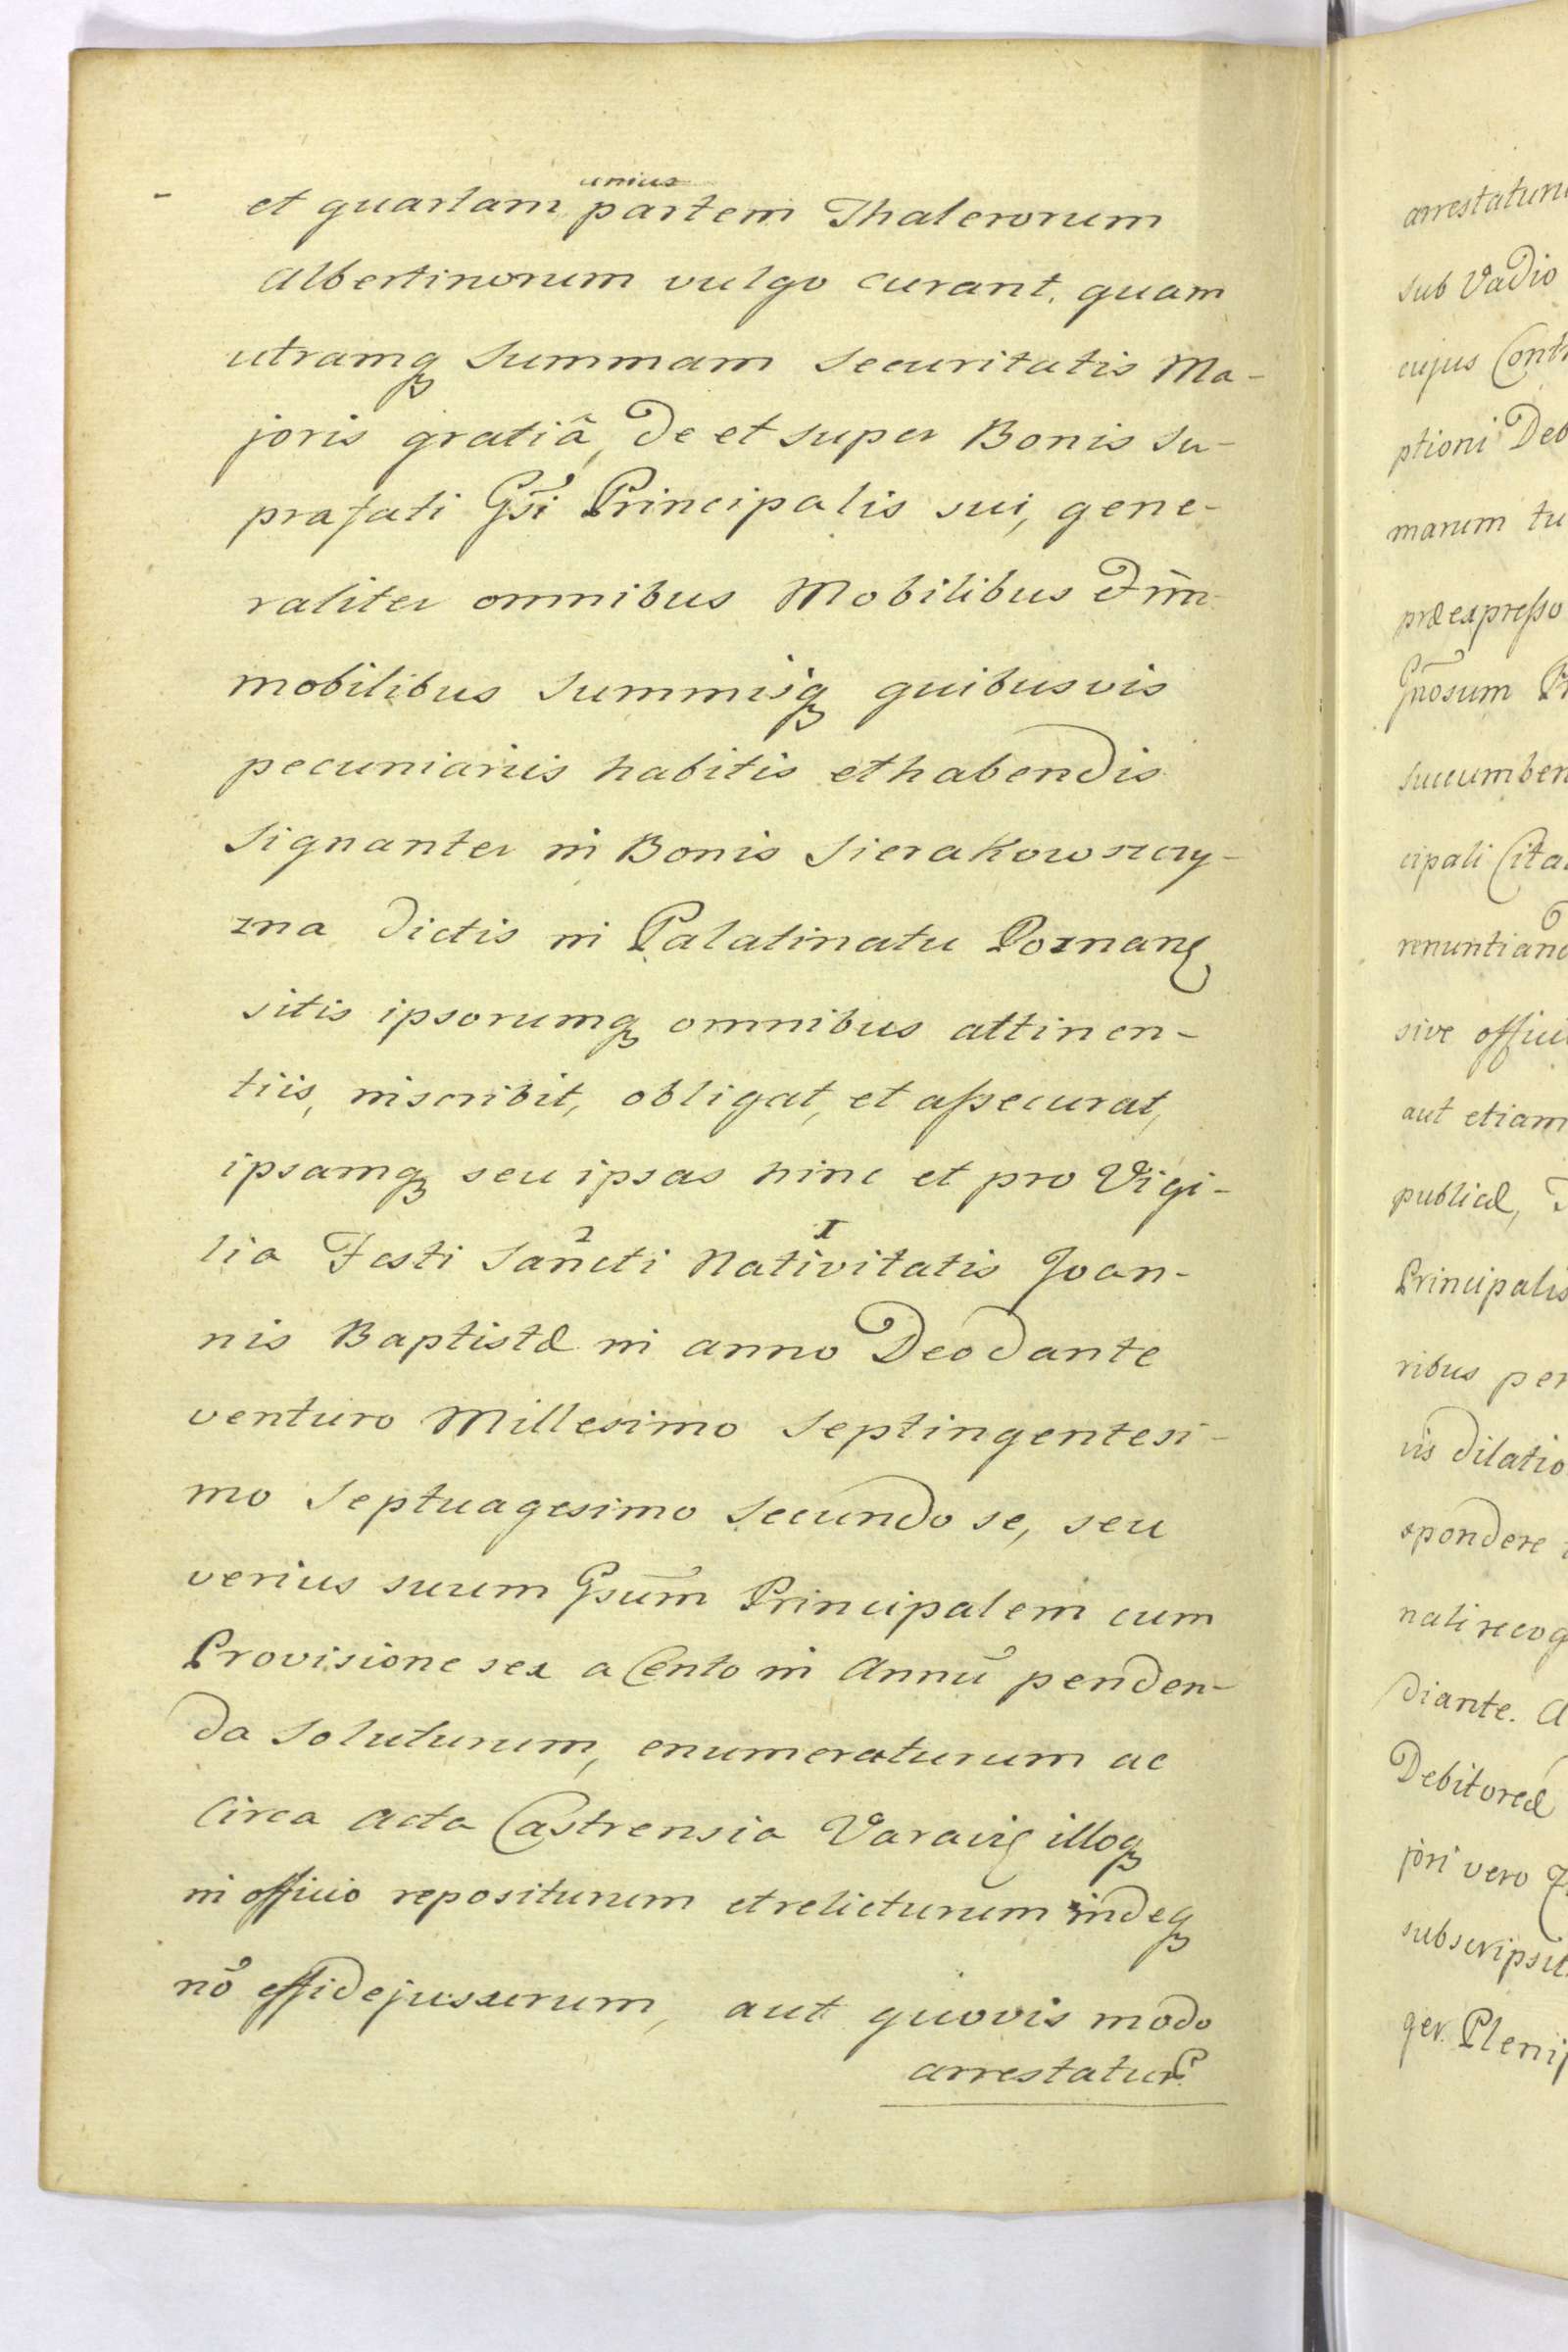 unius
et quartam partem Thalerorum
Albertinorum vulgo curant. quam
utramq₃ Summam Securitatis Ma-
joris gratiâ, de et super Bonis su-
prafati Gsi Principalis sui, gene-
raliter omnibus Mobilibus et im̄-
mobilibus Summisq₃ quibusvis
pecuniariis habitis et habendis
Signanter in Bonis Sierakowszczy-
zna dictis in Palatinatu Poznanę
sitis ipsorumq₃ omnibus attinen-
tiis, inscribit, obligat, et aſsecurat,
ipsamq₃ seu ipsas hinc et pro Vigi-
2 I
lia Festi Sancti Nativitatis Joan-
nis Baptistæ in anno Deo dante
venturo Millesimo Septingentesi-
mo Septuagesimo Secundo se, seu
verius suum Gsum̄ Principalem cum
Provisione sex a Cento in Annū penden-
da Soluturum, enumeraturum ac
Circa Acta Castrensia Varavię illoq₃
in officio repositurum et relicturum indeq₃
nō effidejussurum, aut quovis modo
arrestatur̄
arrestatum
sub Vadio
cujus Cont
ptioni Deb
marum tu
præexpreſso
Gn̄osum Pr
succumben
cipali Cita
renuntiand
sive offici
aut etiam
publicæ,
Principalis
ribus per
vis dilatio
spondere
nali recog
diante. A
Debitoreæ
jori vero
subscripsit
ger. Plenip